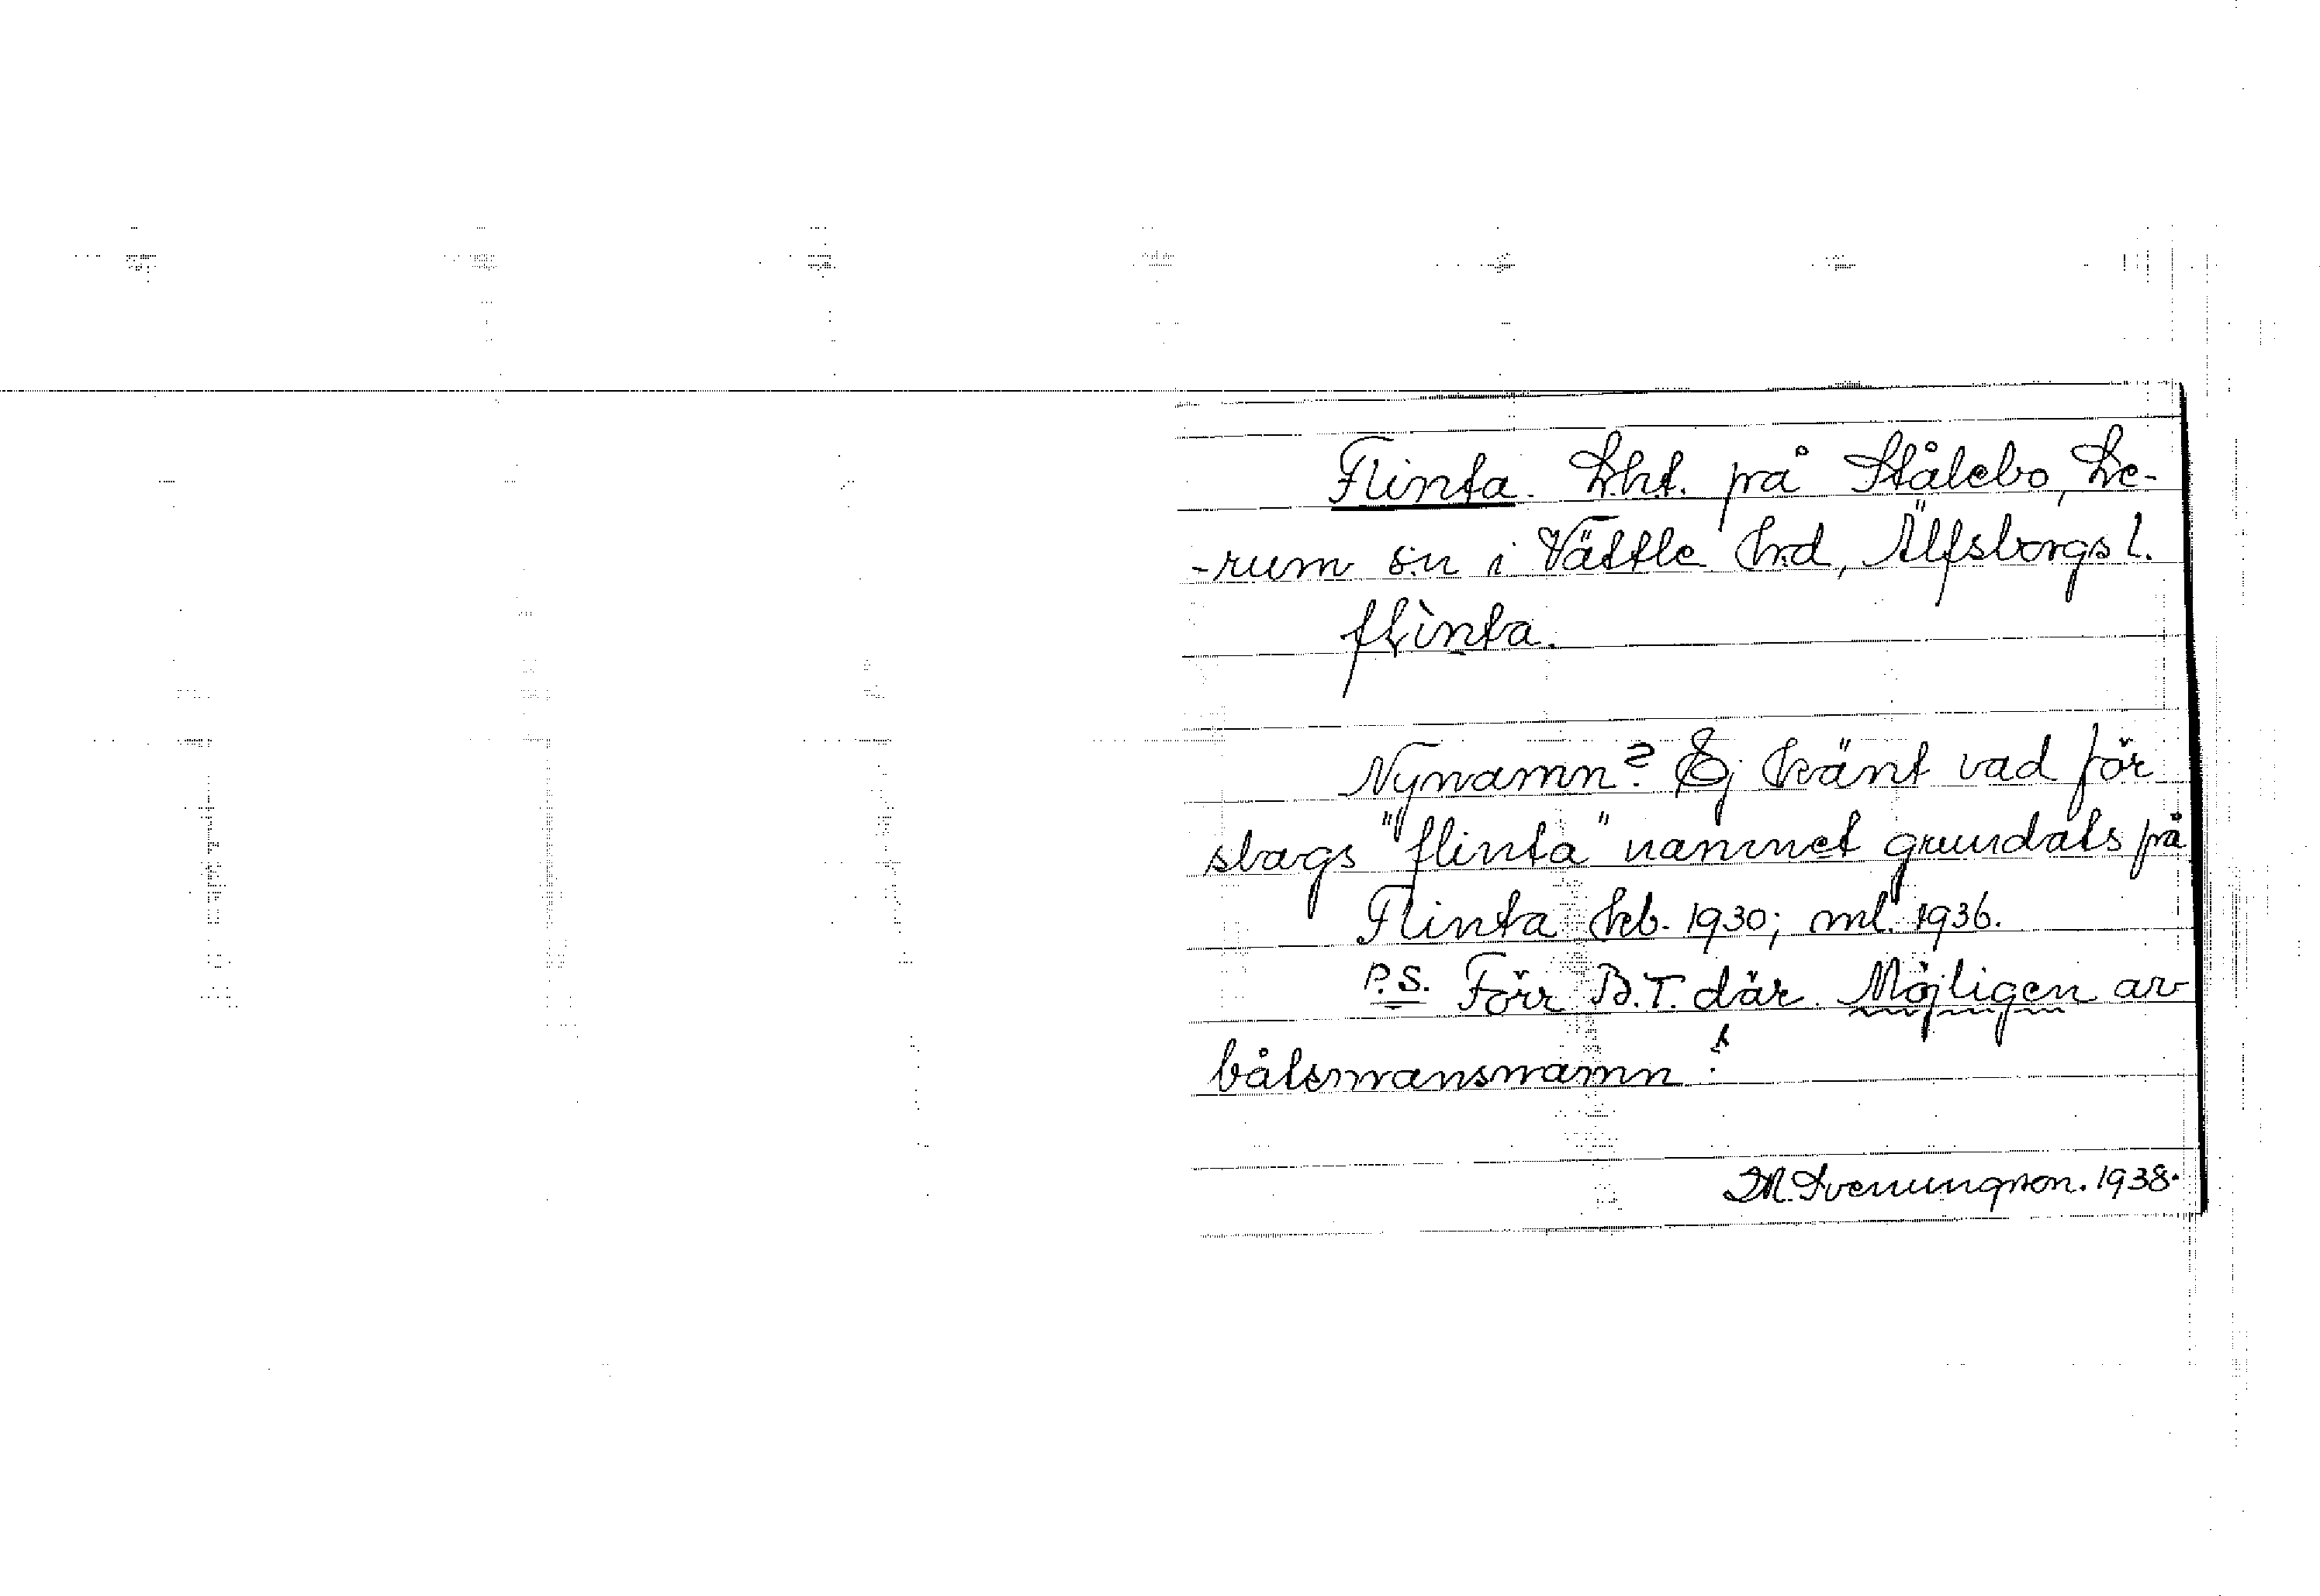 Flinta. Lht. på Stålebo, Le-
-rum sn i Vättle hrd, Älfsborgs l.
flìnta.
Nynamn? Ej känt vad för
slags "flinta" namnet grundats på
Flinta kb. 1930; ml. 1936.
P.S. Förr B.T. där. Möjligen av
båtsmansnamn!
M. Svenungson. 1938.